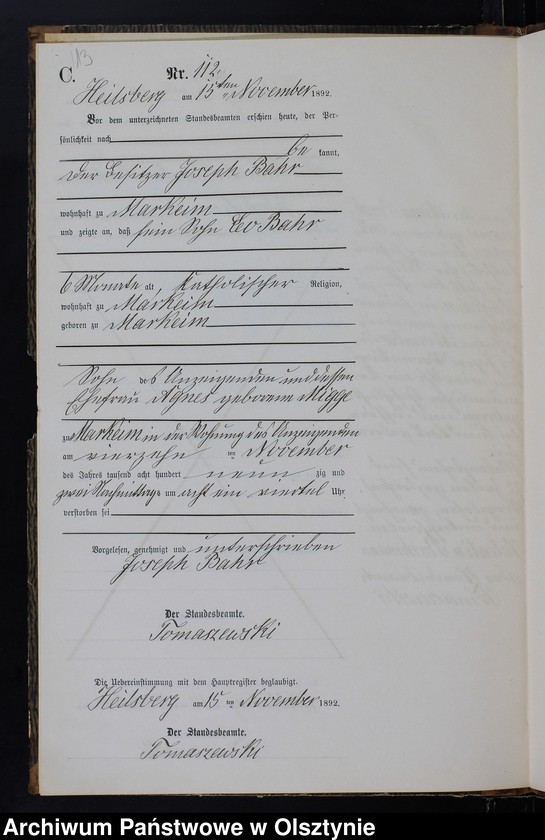 113
C.
Nr. 112.
Heilsberg am 15ten November 1892.
Vor dem unterzeichneten Standesbeamten erschien heute, der Per-
sönlichkeit nach
be kannt,
der Besitzer Joseph Bahr
wohnhaft zu Markeim
und zeigte an, daß sein Sohn Leo Bahr
6 Monate alt, Katholischer Religion,
wohnhaft zu Markeim
geboren zu Markeim
Sohn des Anzeigenden und dessen
Ehefrau Agnes geborene Migge
zu Markeim in der Wohnung des Anzeigenden
am vierzehn ten November
des Jahres tausend acht hundert neun zig und
zwei Nachmittags um acht ein viertel Uhr
verstorben sei
Vorgelesen, genehmigt und unterschrieben
Joseph Bahr
Der Standesbeamte.
Tomaszewski
Die Uebereinstimmung mit dem Hauptregister beglaubigt.
Heilsberg am 15 ten November 1892.
Der Standesbeamte.
Tomaszewski
Archiwum Państwowe w Olsztynie